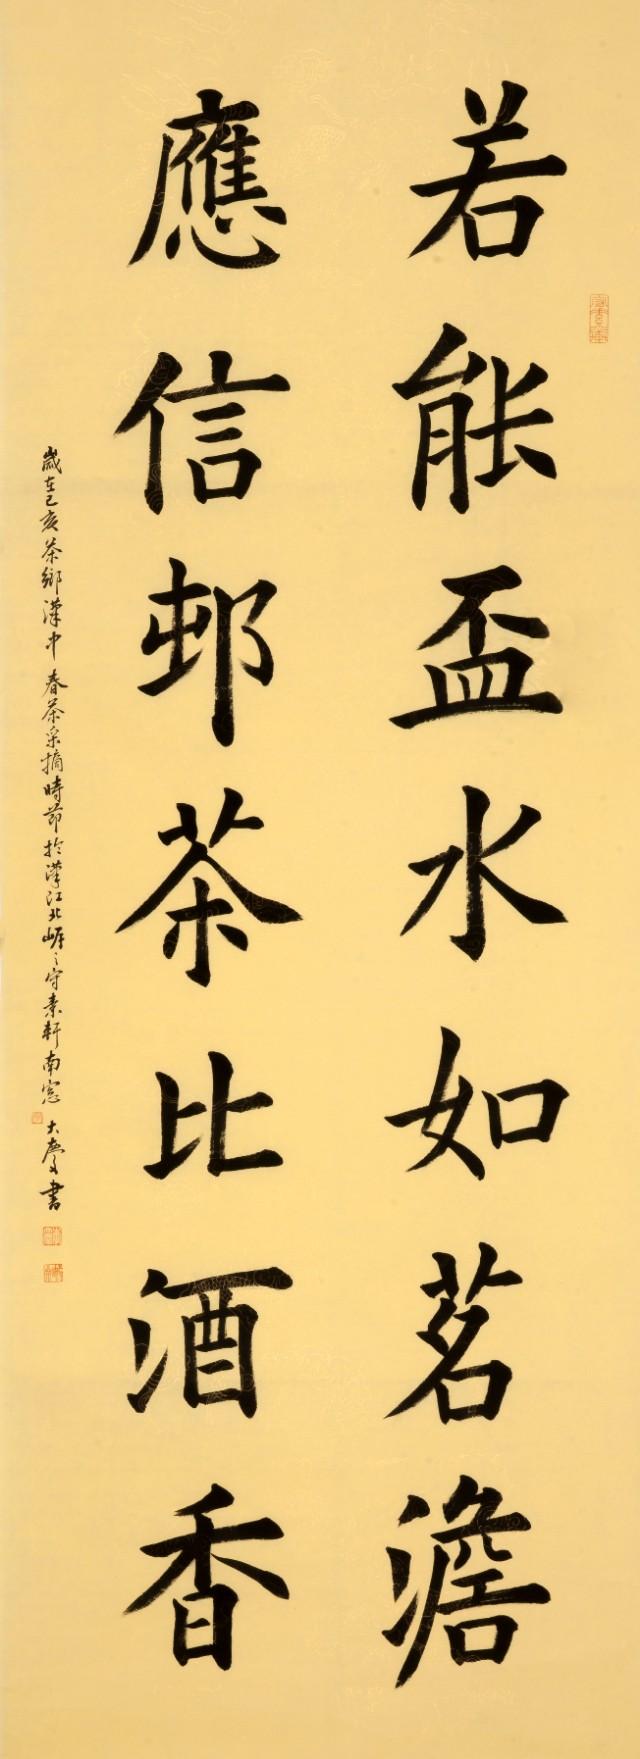 若能盃水如茗澹
應信邨茶比酒香
歲在己亥茶鄉漢中春茶采摘時節於漢江北崖之守素軒南窓 大慶書